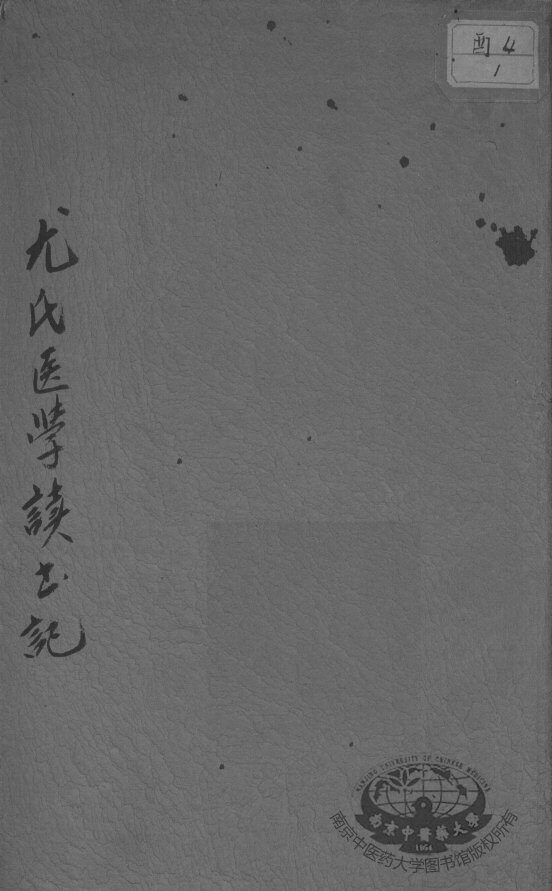 酉 4
1
尤氏医学讀书記
NANJING UNIVERSITY OF CHINESE MEDICINE
南京中醫藥大學
1954
南京中医药大学图书馆版权所有